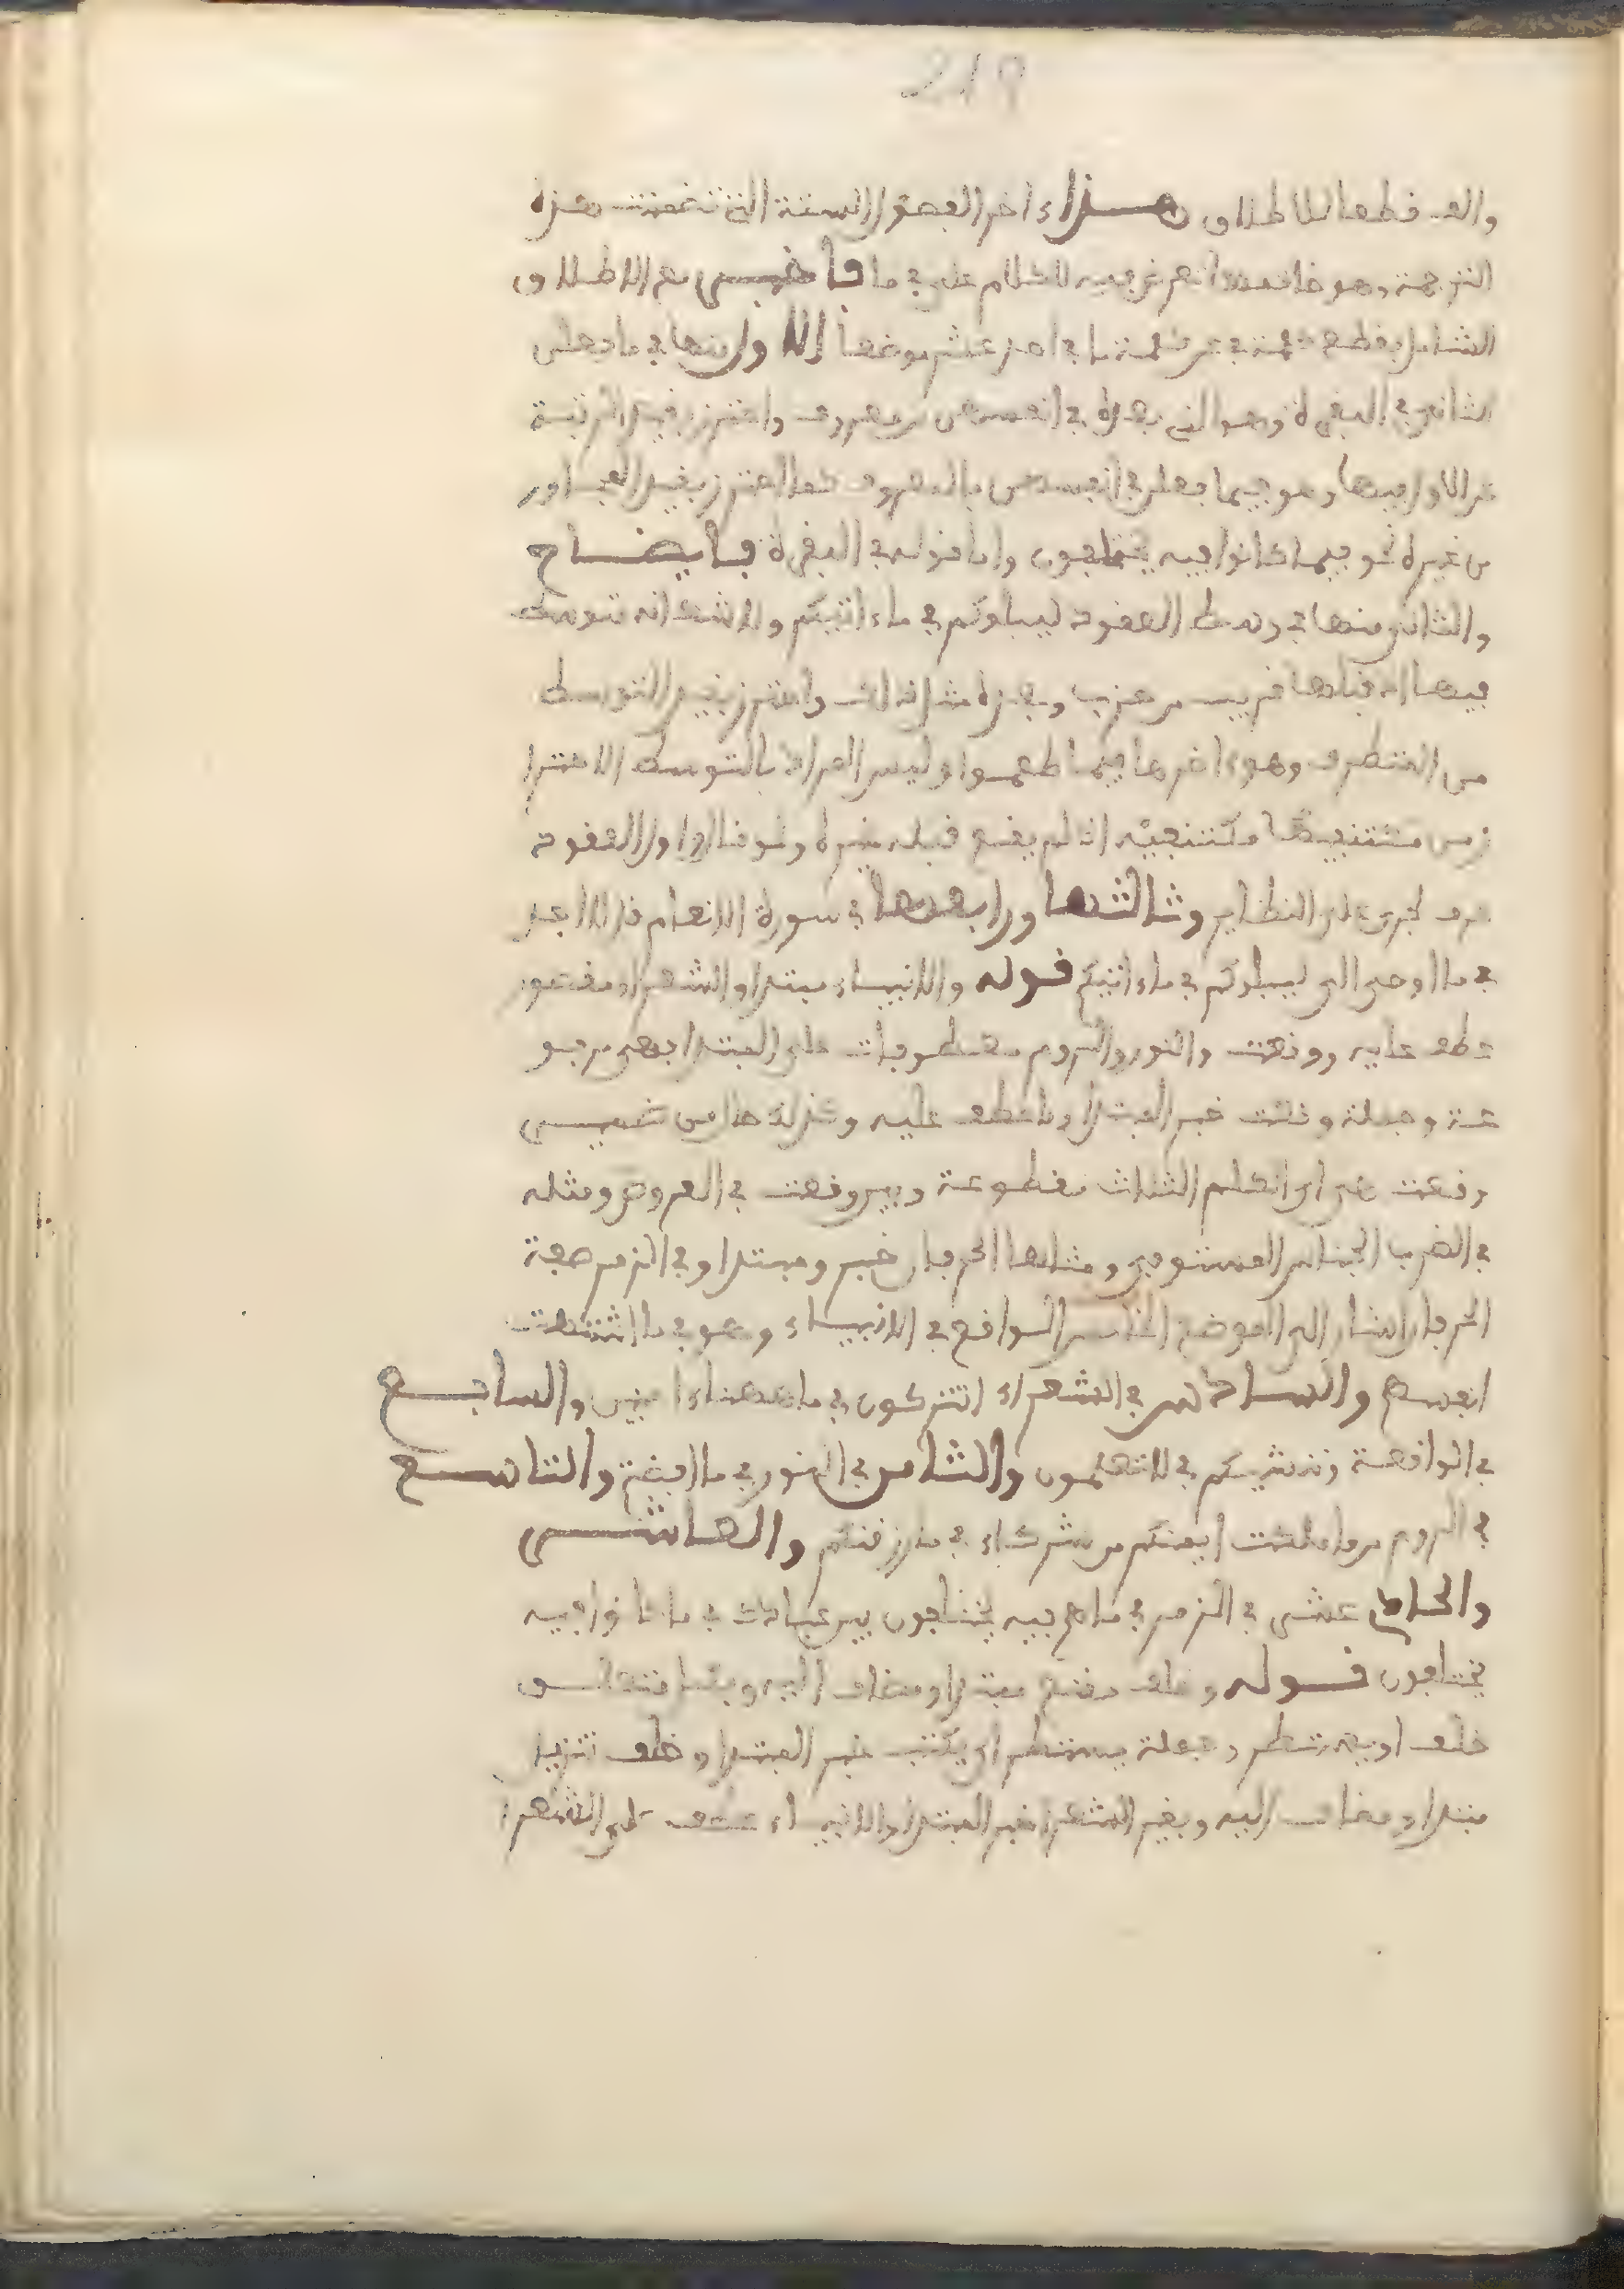 219
والف قطعها للاطلاق هذا ءاخر الفصول الستة التي تضمنت هذه
الترجمة وهو خامسها تعرض فيه للكلام على في ما فاخبر مع الاطلاق
الشامل بقطع كلمة في عن كلمة ما في احد عشر موضعا الاول منها في ما فعلن
الثاني في البقرة وهو الذي بعده في انفسهن من معروف واحترز بقيد المرتبة
عن الاول فيها وهو فيما فعلن في انفسهن بالمعروف كما احترز بقيد المجاور
من غيره نحو فيما كانوا فيه يختلفون واما قوله في البقرة فايضاح
والثاني منها في وسط العقود ليبلوكم في ما ءاتيكم ولا شك انه توسط
فيها اذ قبلها قريب من حزب وبعده مثل ذلك واحترز بقيد التوسط
من المتطرف وهو ءاخرها فيما طعموا وليس المراد بالتوسط الاحترا
زمن مكتنفيه اذ لم يقع قبله غيره ولو قال اول العقود
حرف لجرى على النظاير وثالثها ورابعها في سورة الانعام قل لا اجد
في ما اوحي الي ليبلوكم في ما ءاتيكم قوله والانبياء مبتدا والشعراء مقصور
عطف عليه ووقعت والنور والروم معطوفات على المبتدا فهي مرفو
عة وجملة وقعت خبر المبتدا وما عطف عليه وكذلك حال من ضمير
وقعت هي اي الكلم الثلاث مقطوعة وبين وقعت في العروض ومثله
في الضرب الجناس المستوفى ومثلها الحرفان خبر ومبتدا وفي الزمر صفة
الحرفان اشار الى الموضع الخامس الواقع في الانبياء وهو في ما اشتهت
انفسهم والسادس في الشعراء اتتركون في ما ههنا ءامنين والسابع
في الواقعة وننشيكم في ما لا تعلمون والثامن في النور في ما افضتم والتاسع
في الروم من ما ملكت ايمنكم من شركاء في ما رزقنكم والعاشر
والحادي عشر في الزمر في ما هم فيه يختلفون بين عبادك في ما كانوا فيه
يختلفون قوله وخلف مقنع مبتدا ومضاف اليه وبكل متعلق
خلف او بمستطر وجملة يستطر اي يكتب خبر المبتدا وخلف تنزيل
مبتدا ومضاف اليه وبغير الشعرا خبر المبتدا والانبياء عطف على الشعرا